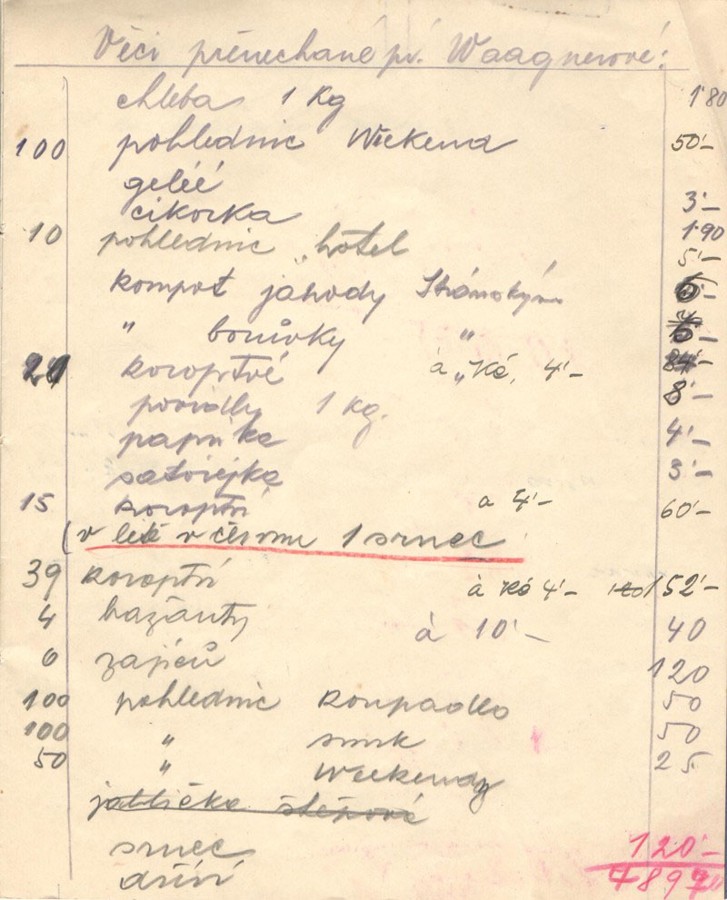 Věci přenechané pí. Waagnerové:
chleba 1 Kg 1·80
100 pohlednic Weekend 50·–
geléé 3·–
cikorka 1·90
10 pohlednic „hotel 5·–
kompot jahody Stránským 6·–
" borůvky " 6·–
21 koroptve à „Kč. 4·– 84·–
povidly 1 kg. 8·–
paprika 4·–
saturejka 3·–
15 koroptví a 4·– 60·–
(v létě v červnu 1 srnec
39 koroptví à Kč 4·– 152·–
4 bažanty à 10·– 40
6 zajíců 120
100 pohlednic koupadlo 50
100 " smrk 50
50 " Weekend 25
jablíčka
srnec 120·–
dříví